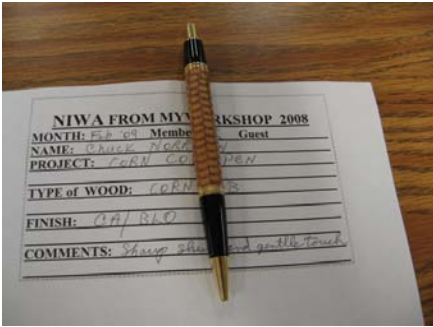 NIWA FROM MY WORKSHOP 2008
MONTH: Feb '09 Member Guest
NAME: Chuck
PROJECT: CORN PEN
TYPE of WOOD: CORN
FINISH: CA/BLO
COMMENTS: Sharp and gentle touch